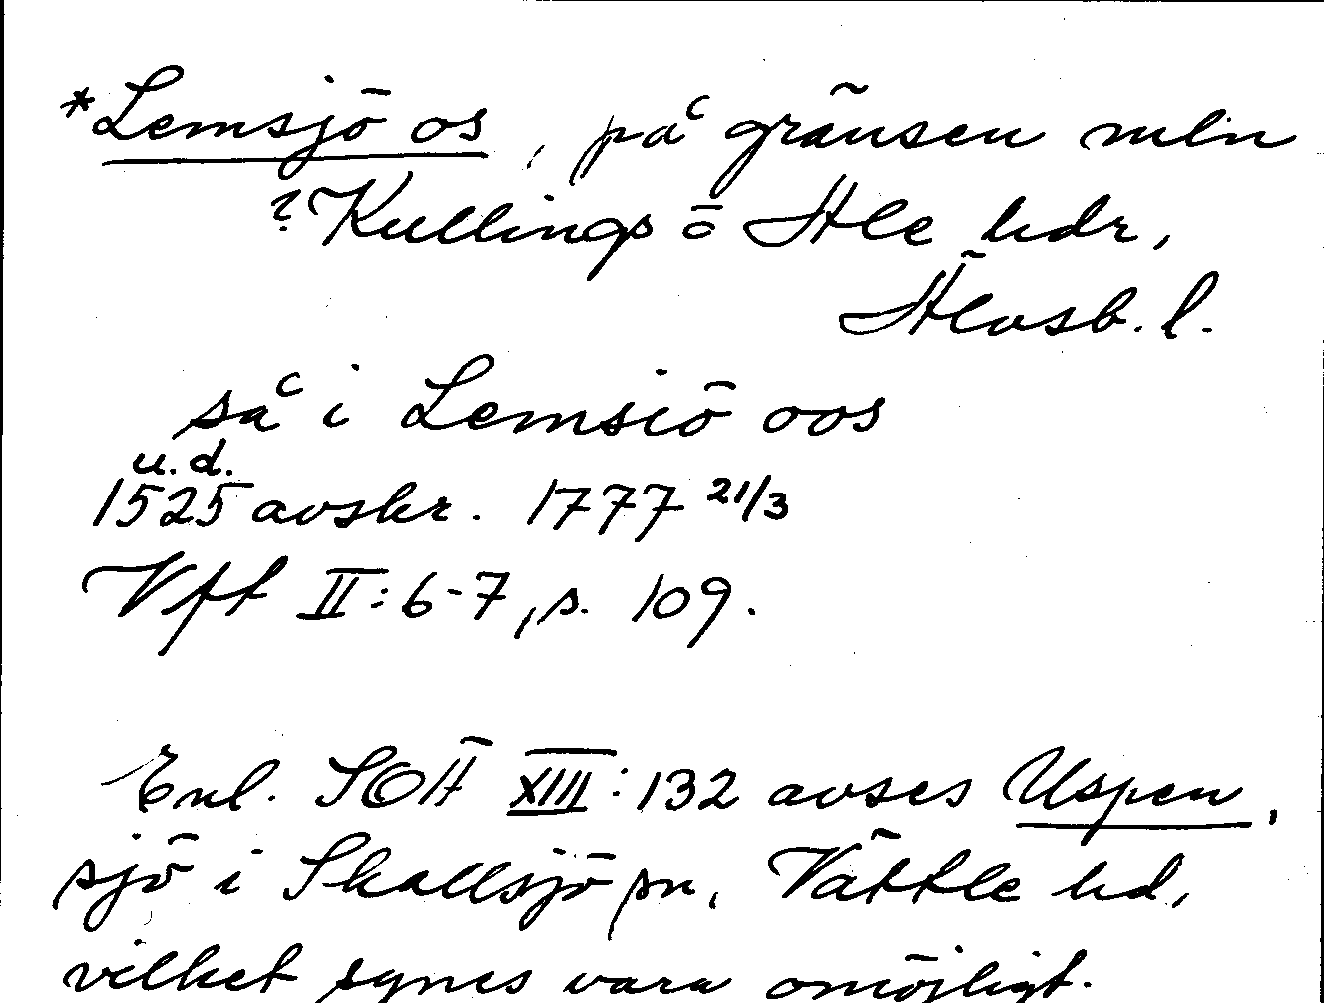 *Lemsjö os, på gränsen mln
? Kullings o Ale hdr,
Älvsb. l.
så i Lemsiö oos
u.d.
1525 avskr. 1777 21/3
Vft II:6-7, s. 109.
Enl. SOÄ XIII:132 avses Uspen,
sjö i Skallsjö sn, Vättle hd,
vilket synes vara omöjligt.